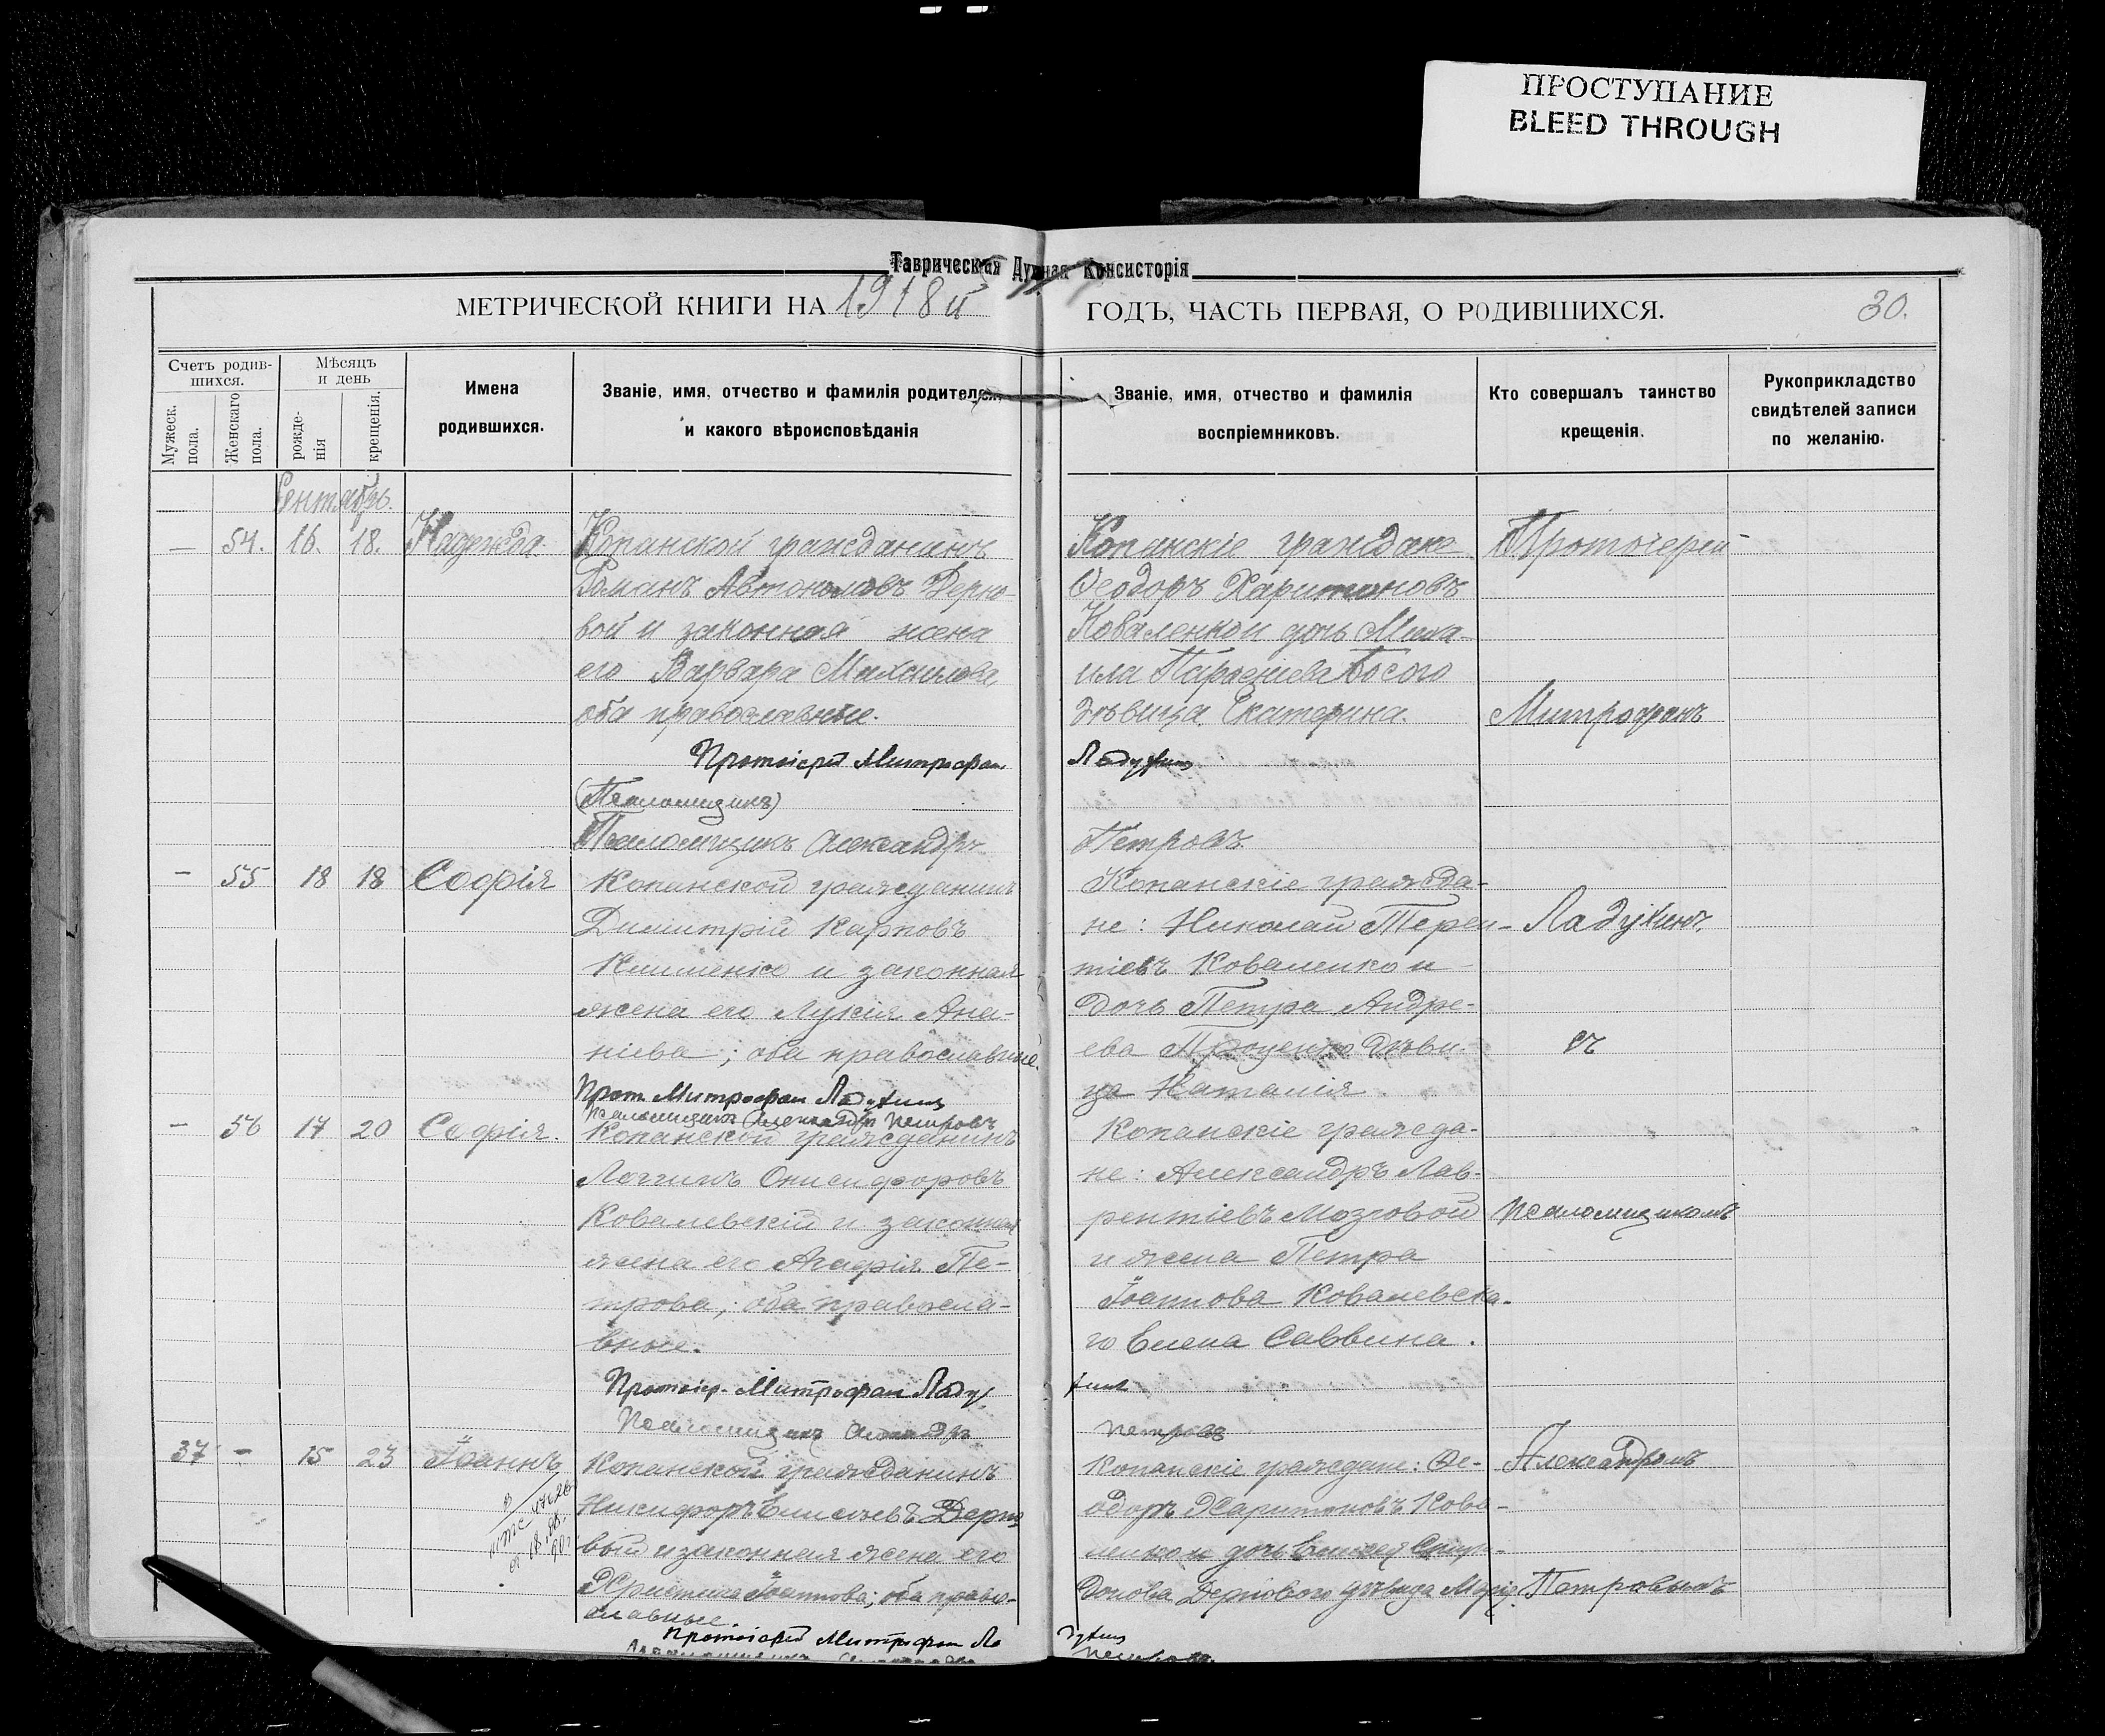 ПРОСТУПАНИЕ
BLEED THROUGH
Таврическая Духная Консисторія
МЕТРИЧЕСКОЙ КНИГИ НА 1918й ГОДЪ, ЧАСТЬ ПЕРВАЯ, О РОДИВШИХСЯ.
30.
Счетъ родив-
шихся.
Мужеск.
пола.
Женскаго
пола.
Мѣсяцъ
и день
рожде-
нія
крещенія.
Имена
родившихся.
Званіе, имя, отчество и фамилія родителей
и какого вѣроисповѣданія
Званіе, имя, отчество и фамилія
воспріемниковъ.
Кто совершалъ таинство
крещенія.
Рукоприкладство
свидѣтелей записи
по желанію.
Сентябрь.
— 54. 16. 18. Надежда.
Копанской гражданинъ
Романъ Автономовъ Дерю-
вой и законная жена
его Варвара Михаилова,
оба православные.
Протоіерей Митрофан
(Псаломщикъ)
Псаломщикъ Александръ
Копанскіе граждане
Ѳеодоръ Харитоновъ
Коваленко и дочь Миха-
ила Парѳеніева Босого
дѣвица Екатерина.
Ладухинъ
Петровъ.
Протоіерей
Митрофанъ
— 55 18 18 Софія
Копанской гражданинъ
Димитрій Карповъ
Клименко и законная
жена его Лукія Ана-
ніева; оба православные.
Прот. Митрофан Ладухинъ
Псаломщикъ Александръ Петровъ
Копанскіе гражда-
не: Николай Терен-
тіевъ Коваленко и
дочь Петра Андре-
ева Проценко дѣви-
ца Наталія.
Ладухинъ.
съ
— 56 17 20 Софія.
Копанской гражданинъ
Логгинъ Онисифоровъ
Ковалевскій и законная
жена его Агафія Пе-
трова; оба правосла-
вные.
Протоіер. Митрофан Ладу
Псаломщикъ Александръ
Копанскіе гражда-
не: Александръ Лав-
рентіевъ Мозговой
и жена Петра
Іоаннова Ковалевска-
го Елена Саввина.
хинъ
Петровъ
псаломщикомъ
37 — 15 23 Іоаннъ
Копанской гражданинъ
Никифоръ Елисѣевъ Дерю
вый и законная жена его
Христина Іоаннова; оба право-
славные.
Протоіерей Митрофан Ла
Копанскіе граждане: Ѳе-
одоръ Харитоновъ Кова-
ленко и дочь Елисея Спири-
донова Дерювого дѣвица Марія.
духинъ
Петровъ.
Александромъ
Петровымъ